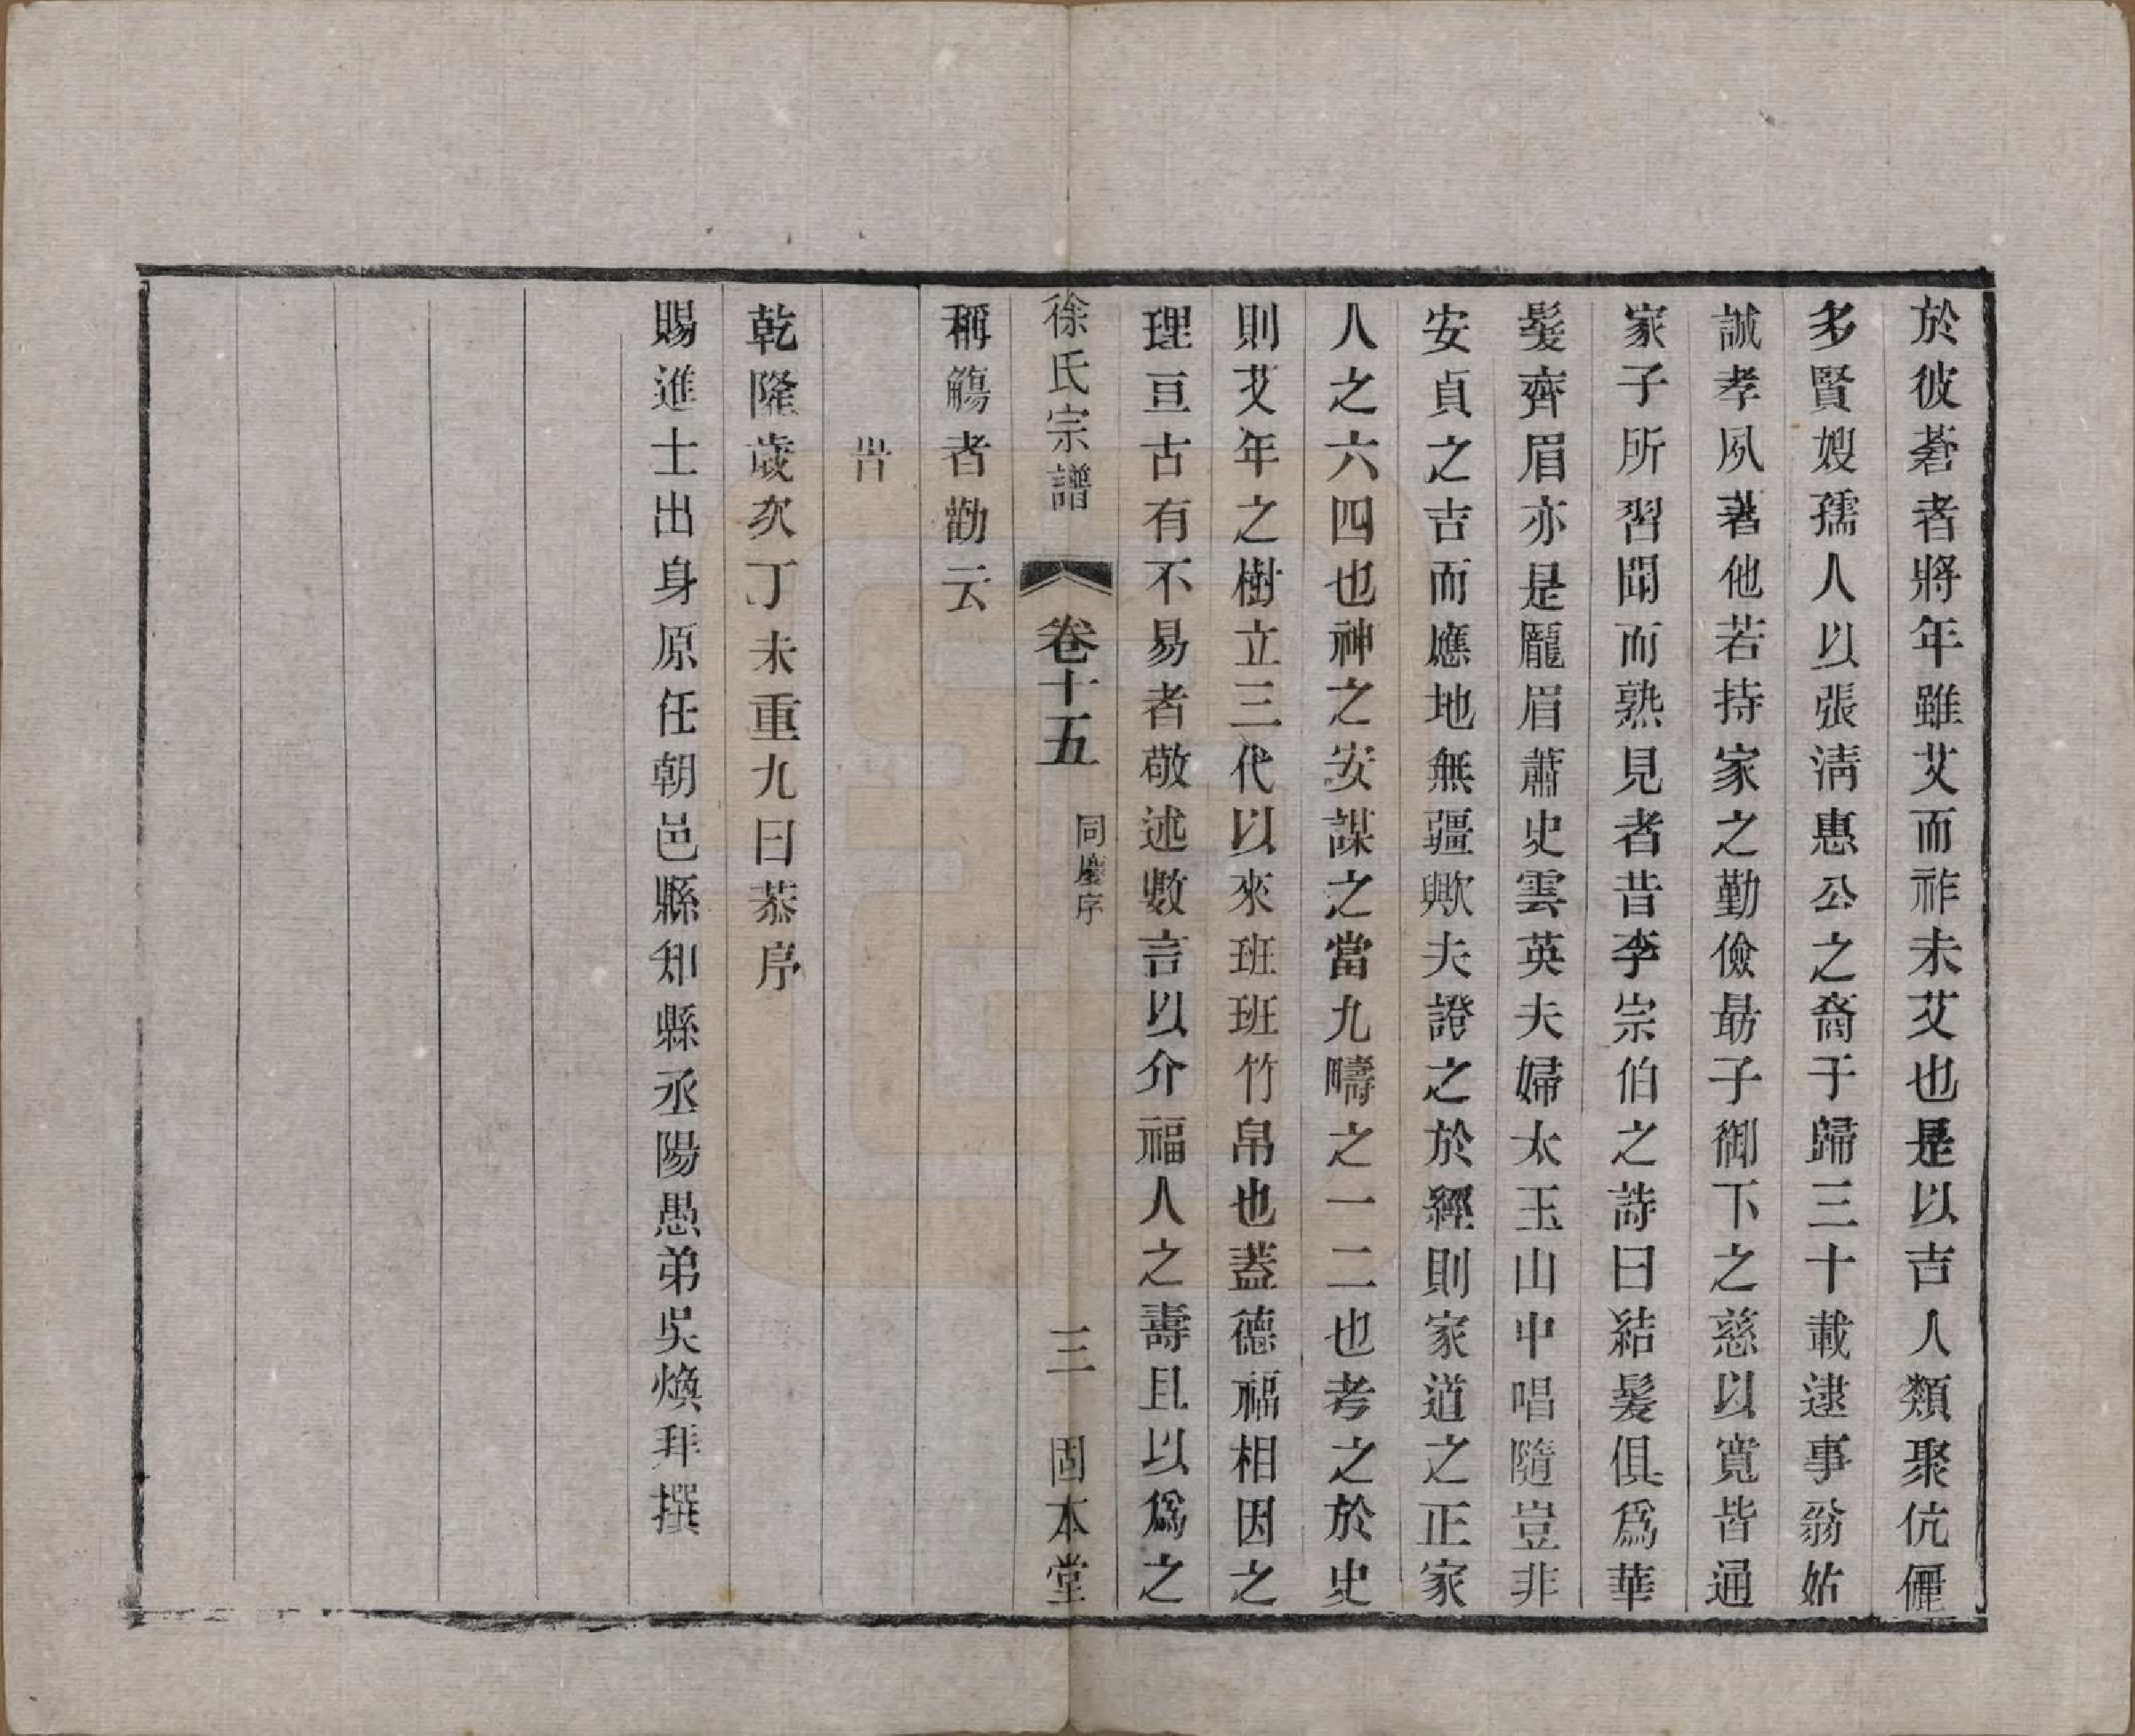 於彼蒼者將年雖艾而祚未艾也是以吉人類聚伉儷
多賢嫂孺人以張淸惠公之裔于歸三十載逮事翁姑
誠孝夙著他若持家之勤儉最子御下之慈以寬皆通
家子所習聞而熟見者昔李宗伯之詩曰結髮俱爲華
髮齊眉亦是龎眉蕭史雲英夫婦太玉山中唱隨豈非
安貞之吉而應地無疆歟夫證之於經則家道之正家
人之六四也神之安謀之當九疇之一二也考之於史
則艾年之樹立三代以來班班竹帛也蓋德福相因之
理亘古有不易者敬述數言以介福人之壽且以爲之
徐氏宗譜 卷十五 同塵序 三 固本堂
稱觴者勸云
旹
乾隆歲次丁未重九日恭序
賜進士出身原任朝邑縣知縣丞陽愚弟吳煥拜撰